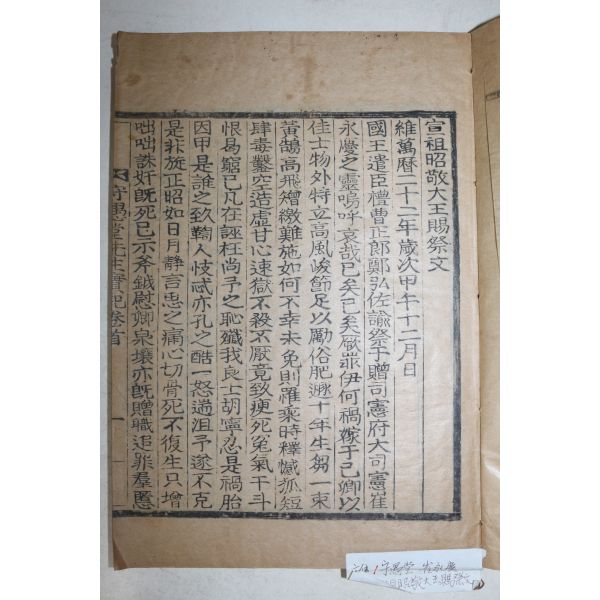 宣祖昭敬大王賜祭文
維萬曆二十二年歲次甲午十二月日
國王遣臣禮曹正郎鄭弘佐諭祭于贈司憲府大司憲崔
永慶之靈嗚呼哀哉已矣已矣厥辜伊何禍嫁于己卿以
佳士物外特立高風峻節足以勵俗肥遯十年生芻一束
黃鵠高飛矰繳難施如何不幸未免則罹乘時釋憾狐短
肆毒鑿空造虛甘心速獄不殺不厭竟致瘐死冤氣干斗
恨曷窮已凡在誣枉尚予之恥殲我良士胡寧忍是禍胎
因甲是誰之致鞫人忮忒亦孔之酷一怒遄沮予遂不克
是非旋正昭如日月靜言思之痛心切骨死不復生只增
咄咄誅奸既死已示斧鉞慰卿泉壤亦既贈職追罪羣慝
守愚堂先生實紀卷首
一
守愚堂 崔永慶
昭敬大王賜祭文